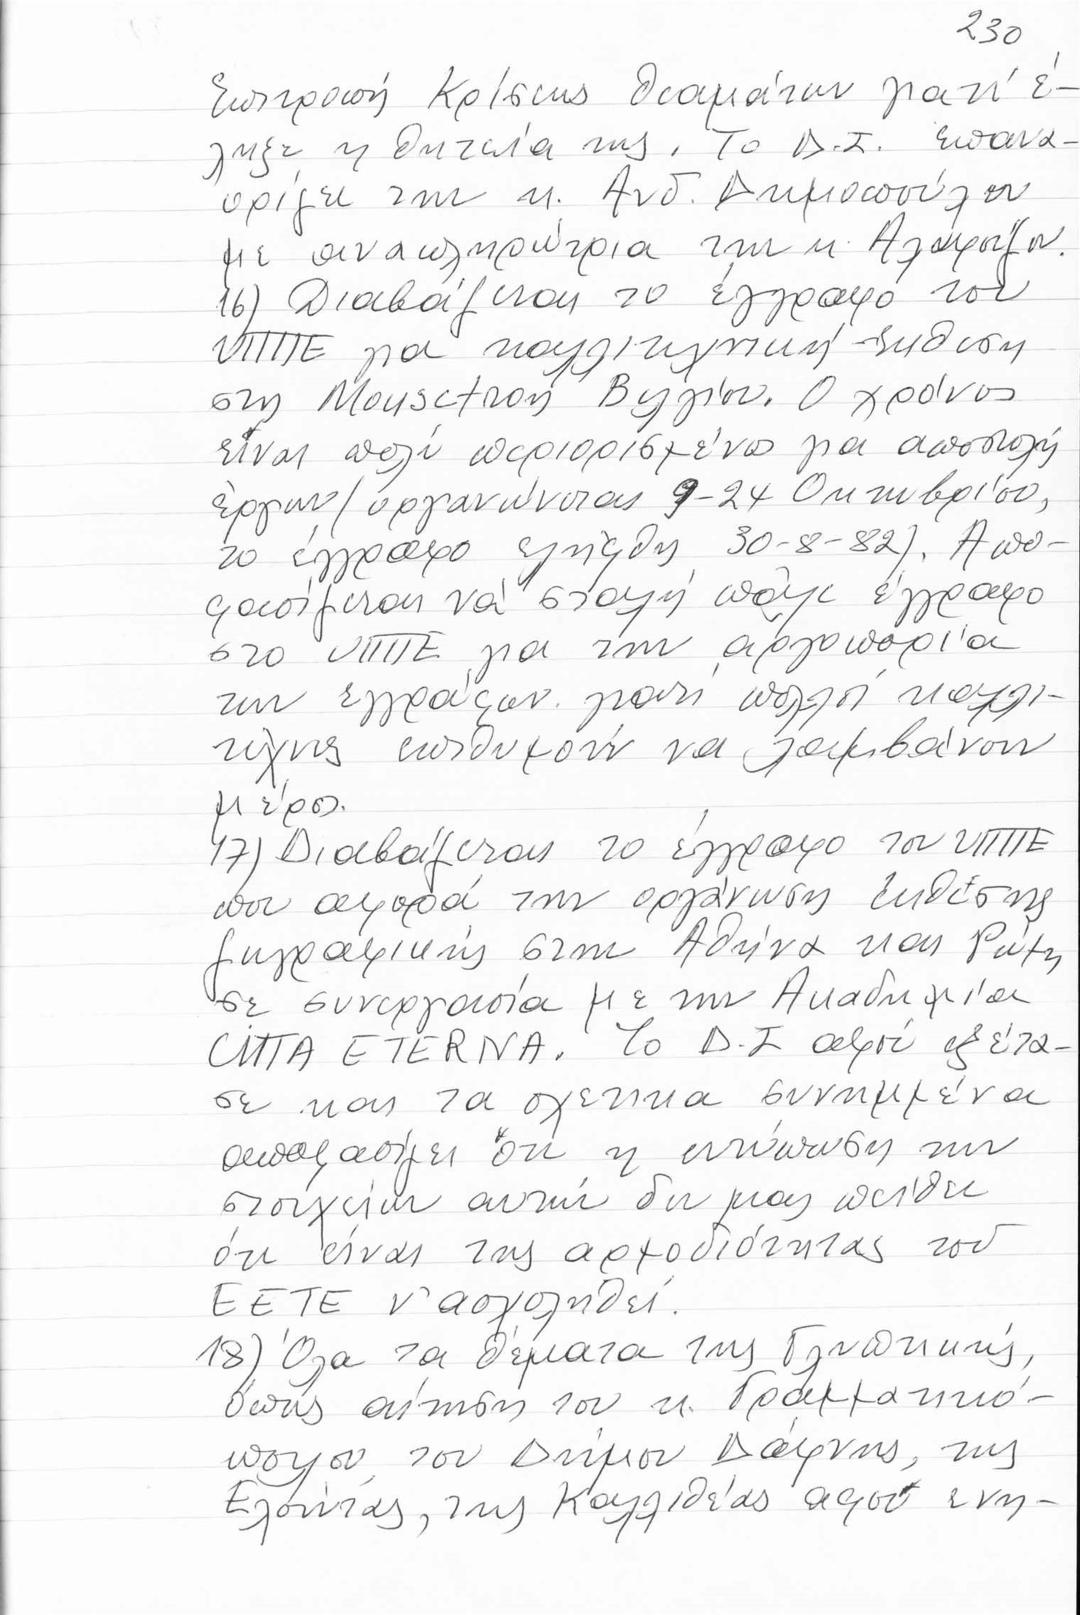 230
Επιτροπή Κρίσεως Θεαμάτων γιατί έ-
ληξε η θητεία της. Το Δ.Σ. επανα-
ορίζει την κ. Ανδ. Δημοπούλου
με αναπληρώτρια την κ.
16) Διαβάζεται το έγγραφο του
ΥΠΠΕ για καλλιτεχνική έκθεση
στη Βελγίου. Ο χρόνος
είναι πολύ περιορισμένος για αποστολή
έργων (οργανώνεται 9-24 Οκτωβρίου,
το έγγραφο ελήφθη 30-8-82). Απο-
φασίζεται νά σταλή πάλι έγγραφο
στο ΥΠΠΕ για την αργοπορία
των εγγράφων γιατί πολλοί καλλι-
τέχνες επιθυμούν να λαμβάνουν
μέρος.
17) Διαβάζεται το έγγραφο του ΥΠΠΕ
που αφορά την οργάνωση Εκθέσης
ζωγραφικής στην Αθήνα και Ρώμη
σε συνεργασία με την Ακαδημία
CITTA ETERNA. Το Δ.Σ αφού εξέτα-
σε και τα σχετικα συνημμένα
αποφασίζει ότι η εντύπωση των
στοιχείων αυτών δεν μας πείθει
ότι είναι της αρμοδιότητας του
ΕΕΤΕ ν' ασχοληθεί.
18) Όλα τα θέματα της Γλυπτικής,
όπως αίτηση του κ. Γραμματικό-
πουλου, του Δήμου Δάφνης, της
Ελούντας, της Καλλιθέας αφού ενη-